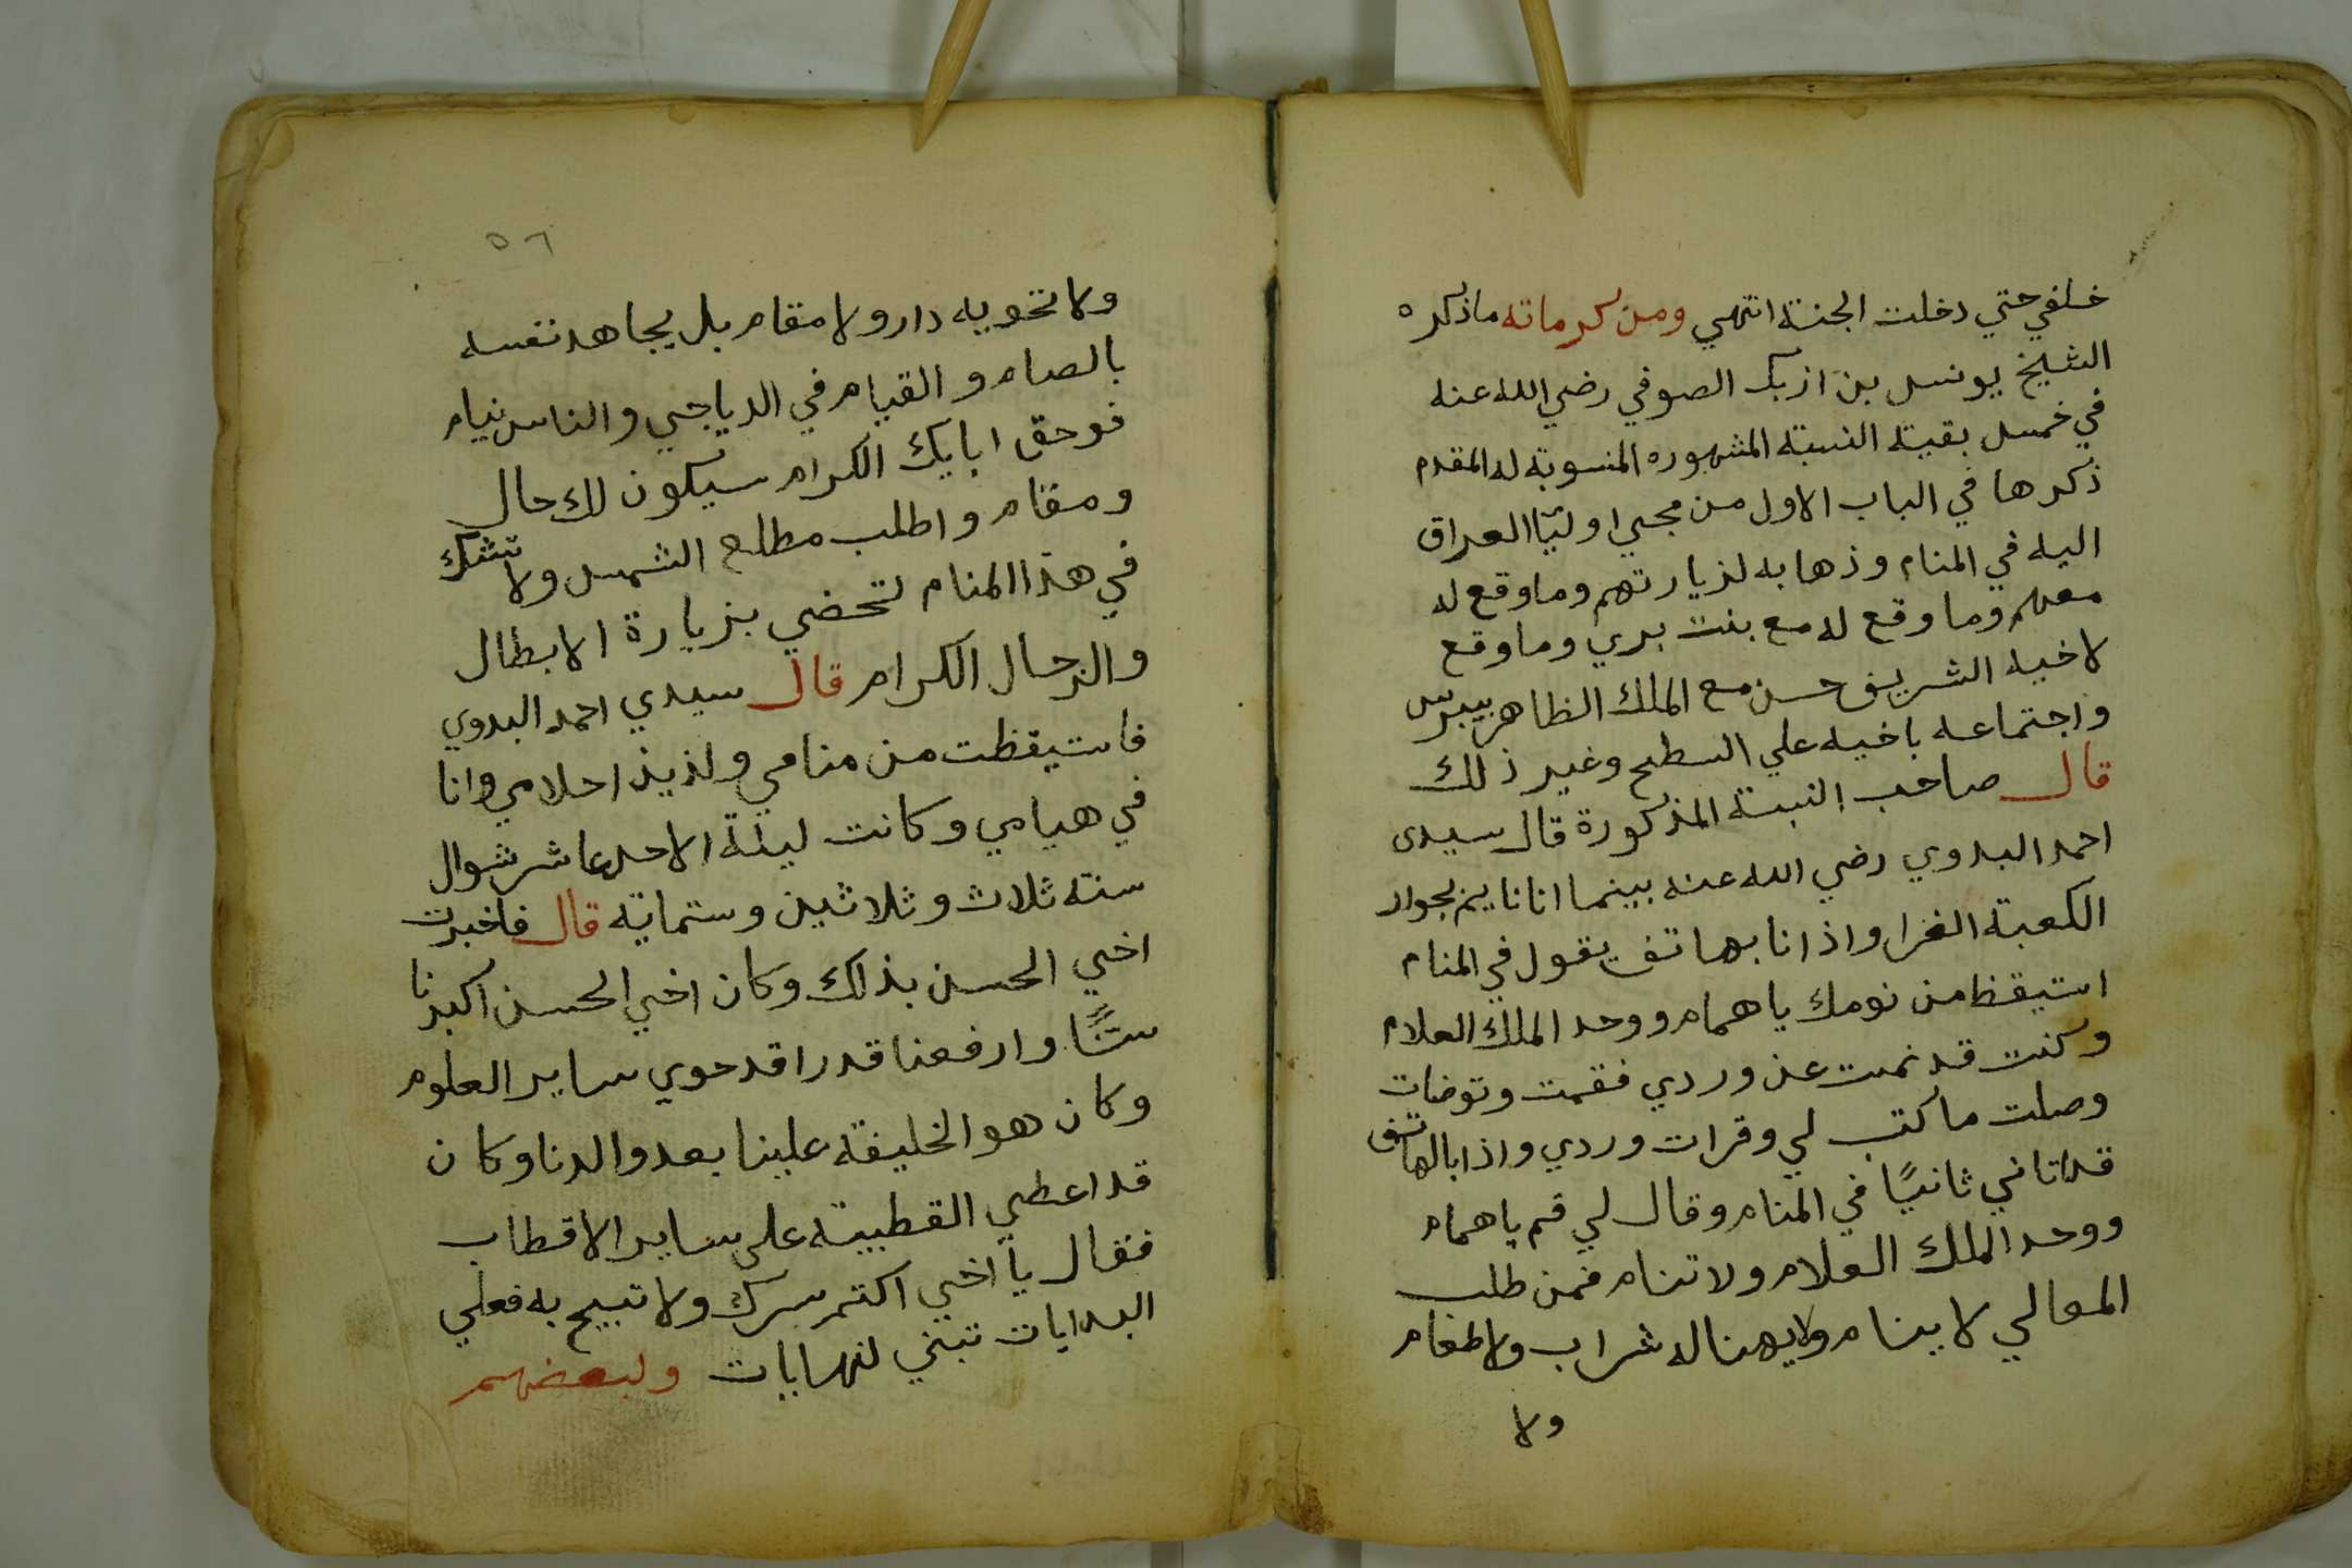 خلفي حتي دخلت الجنة انتهي ومن كرماته ما ذكره
الشيخ يونس بن ازبك الصوفي رضي الله عنه
في خمس بقية النسبة المشهوره المنسوبة له المقدم
ذكرها في الباب الاول من مجي اوليا العراق
اليه في المنام وذهابه لزيارتهم وما وقع له
معهم وما وقع له مع بنت بري وما وقع
لاخيه الشريف حسن مع الملك الظاهر بيبرس
واجتماعه باخيه علي السطح وغير ذلك
قال صاحب النسبة المذكورة قال سيدى
احمد البدوي رضي الله عنه بينما انا نايم بجوار
الكعبة الغرا واذا انا بهاتف يقول في المنام
استيقظ من نومك يا همام ووحد الملك العلام
وكنت قد نمت عن وردي فقمت وتوضات
وصلت ما كتب لي وقرات وردي واذا بالهاتف
قد اتاني ثانيًا في المنام وقال لي قم يا همام
ووحد الملك العلام ولا تنام فمن طلب
المعالي لا ينام ولا يهنا له شراب ولا طعام
ولا
٥٦
ولا تحويه دار ولا مقام بل يجاهد نفسه
بالصام والقيام في الدياجي والناس نيام
فوحق ابايك الكرام سيكون لك حال
ومقام واطلب مطلع الشمس ولا تشك
في هذا المنام لتحضي بزيارة الابطال
والرجال الكرام قال سيدي احمد البدوي
فاستيقظت من منامي ولذيذ احلامي وانا
في هيامي وكانت ليلة الاحد عاشر شوال
سنة ثلاث وثلاثين وستماية قال فاخبرت
اخي الحسن بذلك وكان اخي الحسن اكبرنا
سنًّا وارفعنا قدرا قد حوي ساير العلوم
وكان هو الخليفة علينا بعد والدنا وكان
قد اعطي القطبية على ساير الاقطاب
فقال يا اخي اكتم سرك ولا تبيح به فعلي
البدايات تبني لنهايات ولبعضهم